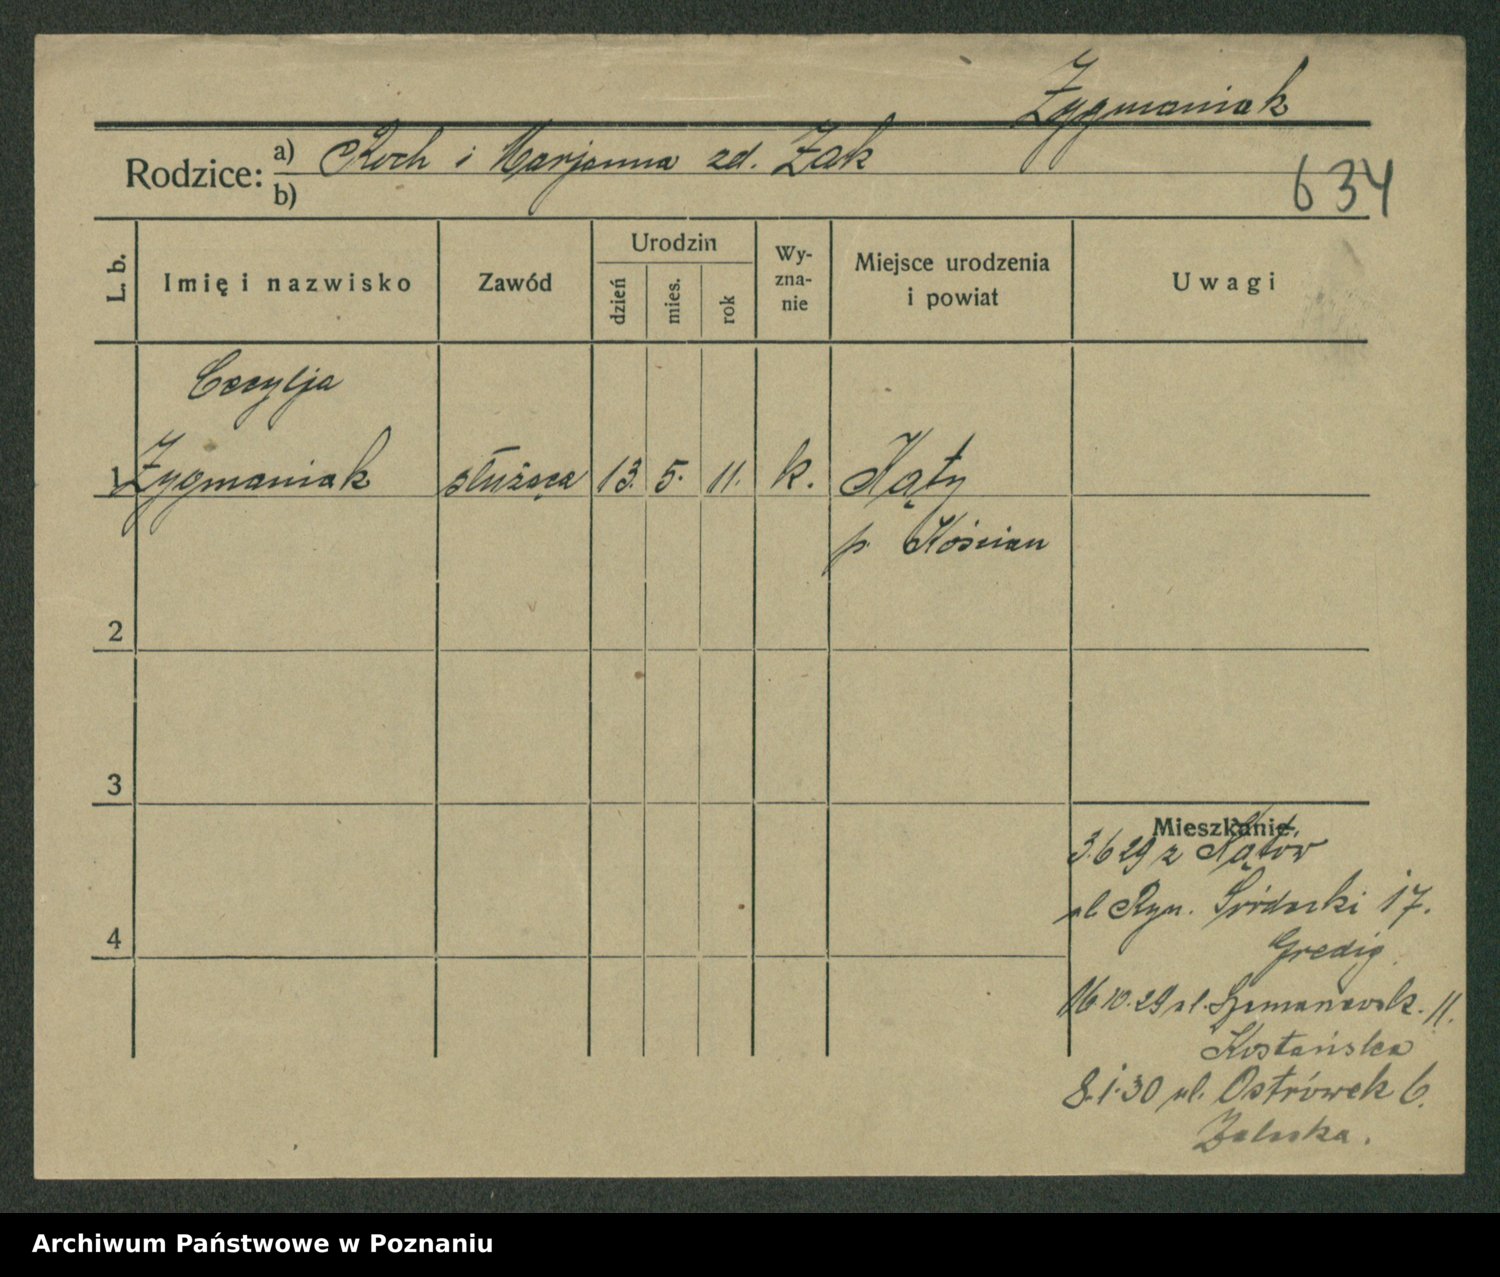 Zygmaniak
Rodzice: a) Roch i Marjanna zd. Żak
b)
634
L. b.
Imię i nazwisko
Zawód
Urodzin
dzień
mies.
rok
Wy-
zna-
nie
Miejsce urodzenia
i powiat
Uwagi
Cecylja
1 Zygmaniak służąca 13. 5. 11. k. Kąty
p. Kościan
2
3
Mieszkanie
3.6 29 z Kątów
ul Ryn. Śródecki 17.
4
Gredig
16.10.29 ul. Szamarzewsk. 11.
Kostańska
8.1.30 ul. Ostrówek 6.
Archiwum Państwowe w Poznaniu